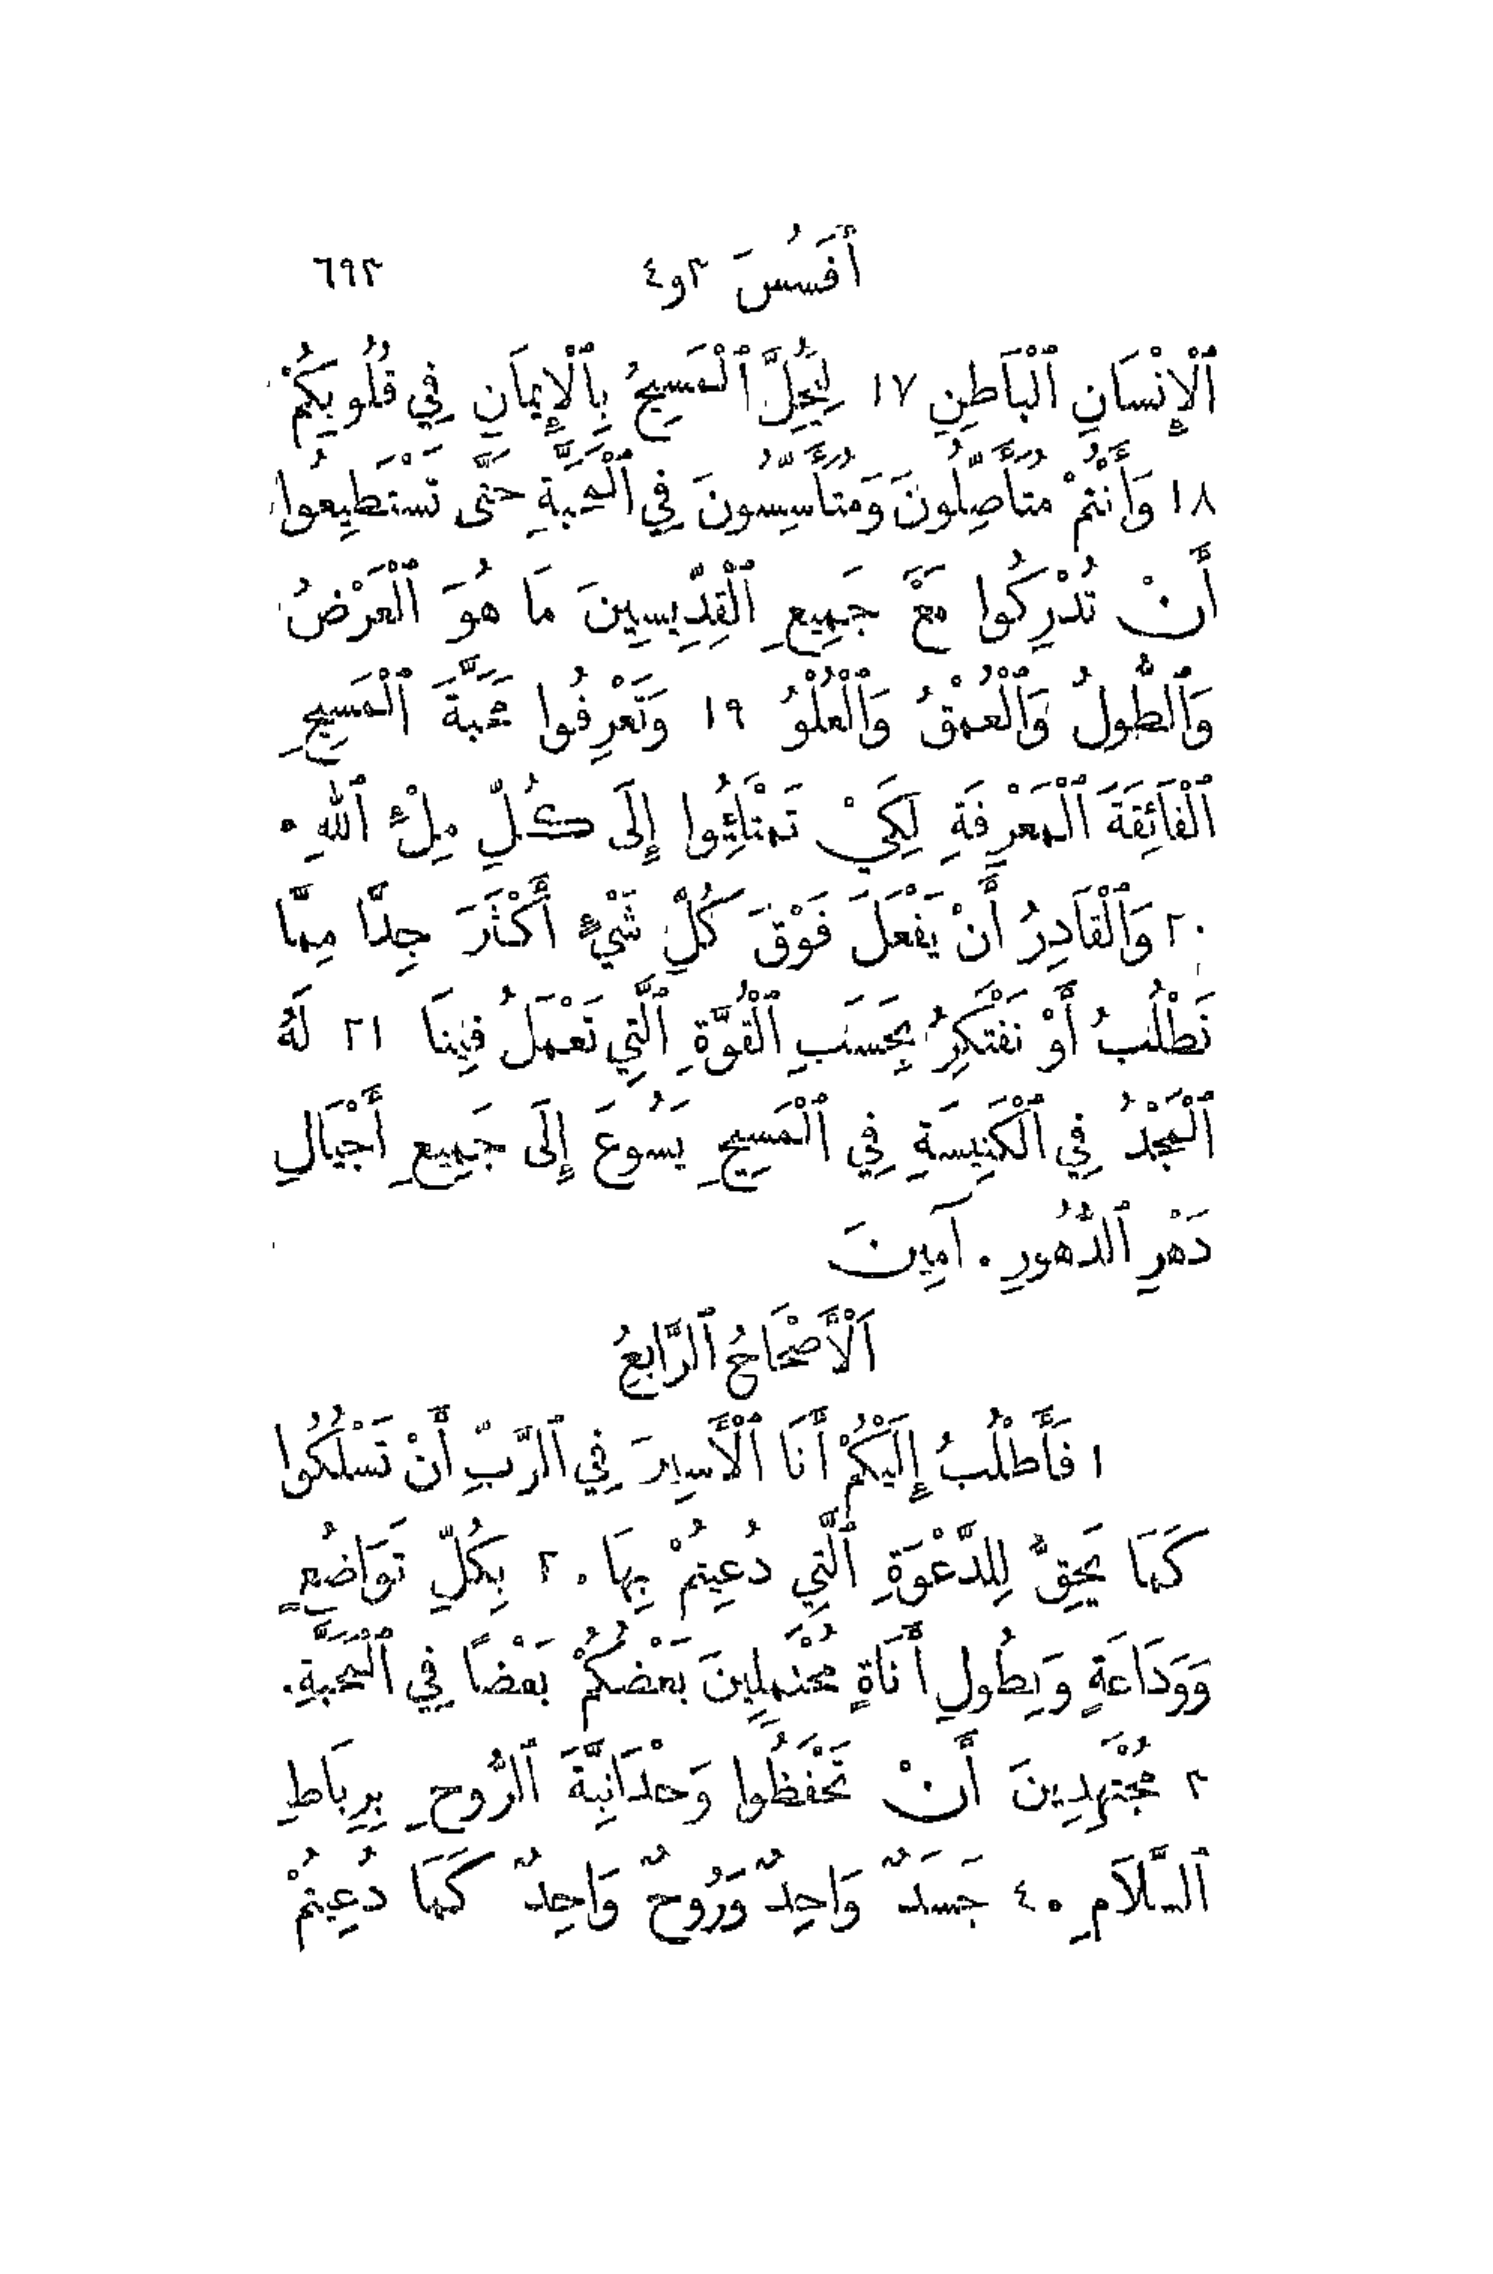 أَفَسُسَ ٣و٤ ٦٩٣
ٱلْإِنْسَانِ ٱلْبَاطِنِ ١٧ لِيَحِلَّ ٱلْمَسِيحُ بِٱلْإِيمَانِ فِي قُلُوبِكُمْ
١٨ وَأَنْتُمْ مُتَأَصِّلُونَ وَمُتَأَسِّسُونَ فِي ٱلْمَحَبَّةِ حَتَّى تَسْتَطِيعُوا
أَنْ تُدْرِكُوا مَعَ جَمِيعِ ٱلْقِدِّيسِينَ مَا هُوَ ٱلْعَرْضُ
وَٱلطُّولُ وَٱلْعُمْقُ وَٱلْعُلْوُ ١٩ وَتَعْرِفُوا مَحَبَّةَ ٱلْمَسِيحِ
ٱلْفَائِقَةَ ٱلْمَعْرِفَةِ لِكَيْ تَمْتَلِئُوا إِلَى كُلِّ مِلْءِ ٱللهِ.
٢٠ وَٱلْقَادِرُ أَنْ يَفْعَلَ فَوْقَ كُلِّ شَيْءٍ أَكْثَرَ جِدًّا مِمَّا
نَطْلُبُ أَوْ نَفْتَكِرُ بِحَسَبِ ٱلْقُوَّةِ ٱلَّتِي تَعْمَلُ فِينَا ٢١ لَهُ
ٱلْمَجْدُ فِي ٱلْكَنِيسَةِ فِي ٱلْمَسِيحِ يَسُوعَ إِلَى جَمِيعِ أَجْيَالِ
دَهْرِ ٱلدُّهُورِ. آمِينَ
اَلْأَصْحَاحُ ٱلرَّابِعُ
١ فَأَطْلُبُ إِلَيْكُمْ أَنَا ٱلْأَسِيرَ فِي ٱلرَّبِّ أَنْ تَسْلُكُوا
كَمَا يَحِقُّ لِلدَّعْوَةِ ٱلَّتِي دُعِيتُمْ بِهَا. ٢ بِكُلِّ تَوَاضُعٍ
وَوَدَاعَةٍ وَبِطُولِ أَنَاةٍ مُحْتَمِلِينَ بَعْضُكُمْ بَعْضًا فِي ٱلْمَحَبَّةِ.
٣ مُجْتَهِدِينَ أَنْ تَحْفَظُوا وَحْدَانِيَّةَ ٱلرُّوحِ بِرِبَاطِ
ٱلسَّلَامِ. ٤ جَسَدٌ وَاحِدٌ وَرُوحٌ وَاحِدٌ كَمَا دُعِيتُمْ